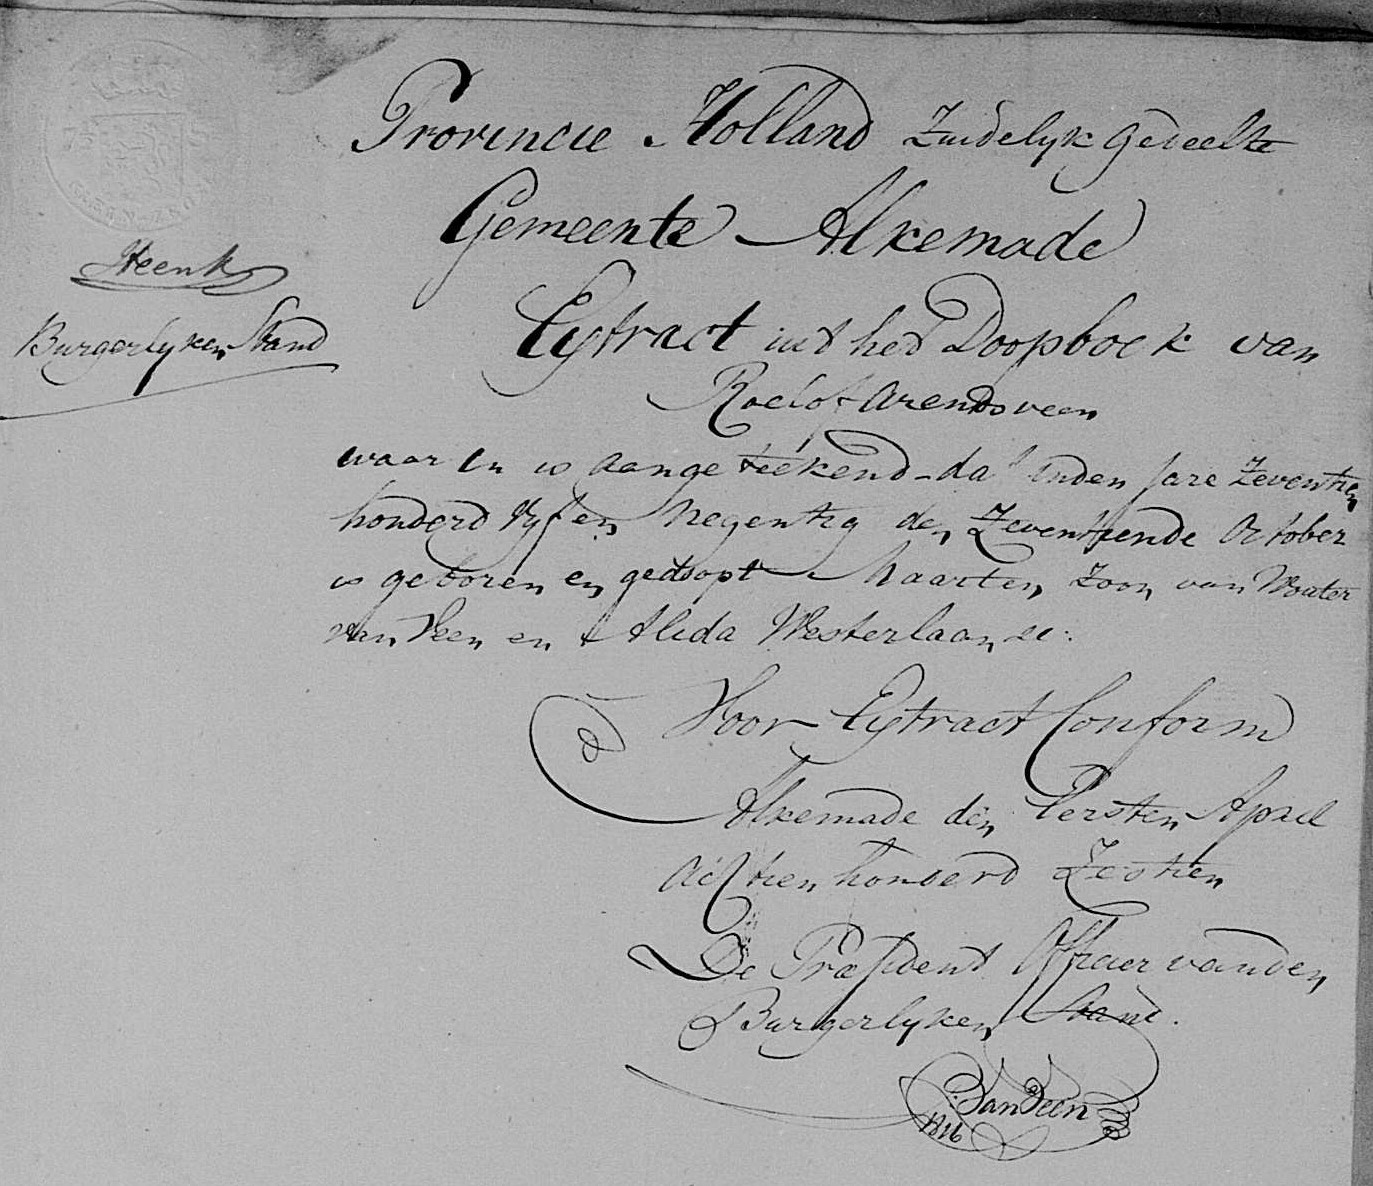 Provincie Holland Zuidelyk gedeelte
Gemeente Alkemade
Burgerlyken Stand
Extract uit het Doopboek van
Roelof Arendsveen
waar in is aangeteekend dat inden jare Zeventien
honderd Vyf en Negentig den Zeventiende October
is geboren en gedoopt Maarten, Zoon van Wouter
van Veen en Alida Westerlaan
Voor Extract Conform
Alkemade den Eersten April
achtien honderd Zestien
De Præsident Officier van den
Burgerlyken Stand.
Van Veen
1816